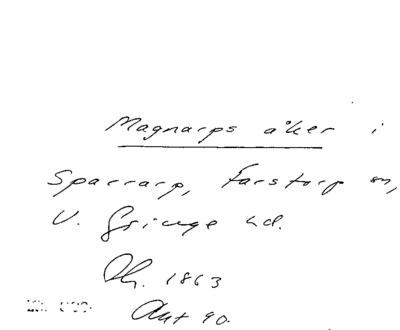 Magnarps åker i
Sparrarp, Farstorp sn,
V. Göinge hd.
Ch. 1863
Akt 90.